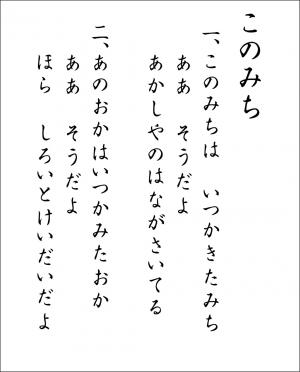 このみち
一、このみちは　いつかきたみち
ああ　そうだよ
あかしやのはながさいてる
二、あのおかはいつかみたおか
ああ　そうだよ
ほら　しろいとけいだいだよ